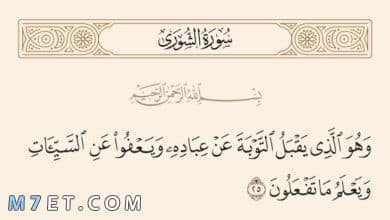 سُورَةُ الشُّورَىٰ
بِسْمِ اللَّهِ الرَّحْمَٰنِ الرَّحِيمِ
وَهُوَ ٱلَّذِى يَقْبَلُ ٱلتَّوْبَةَ عَنْ عِبَادِهِۦ وَيَعْفُوا۟ عَنِ ٱلسَّيِّـَٔاتِ
وَيَعْلَمُ مَا تَفْعَلُونَ ٢٥
M7ET.COM